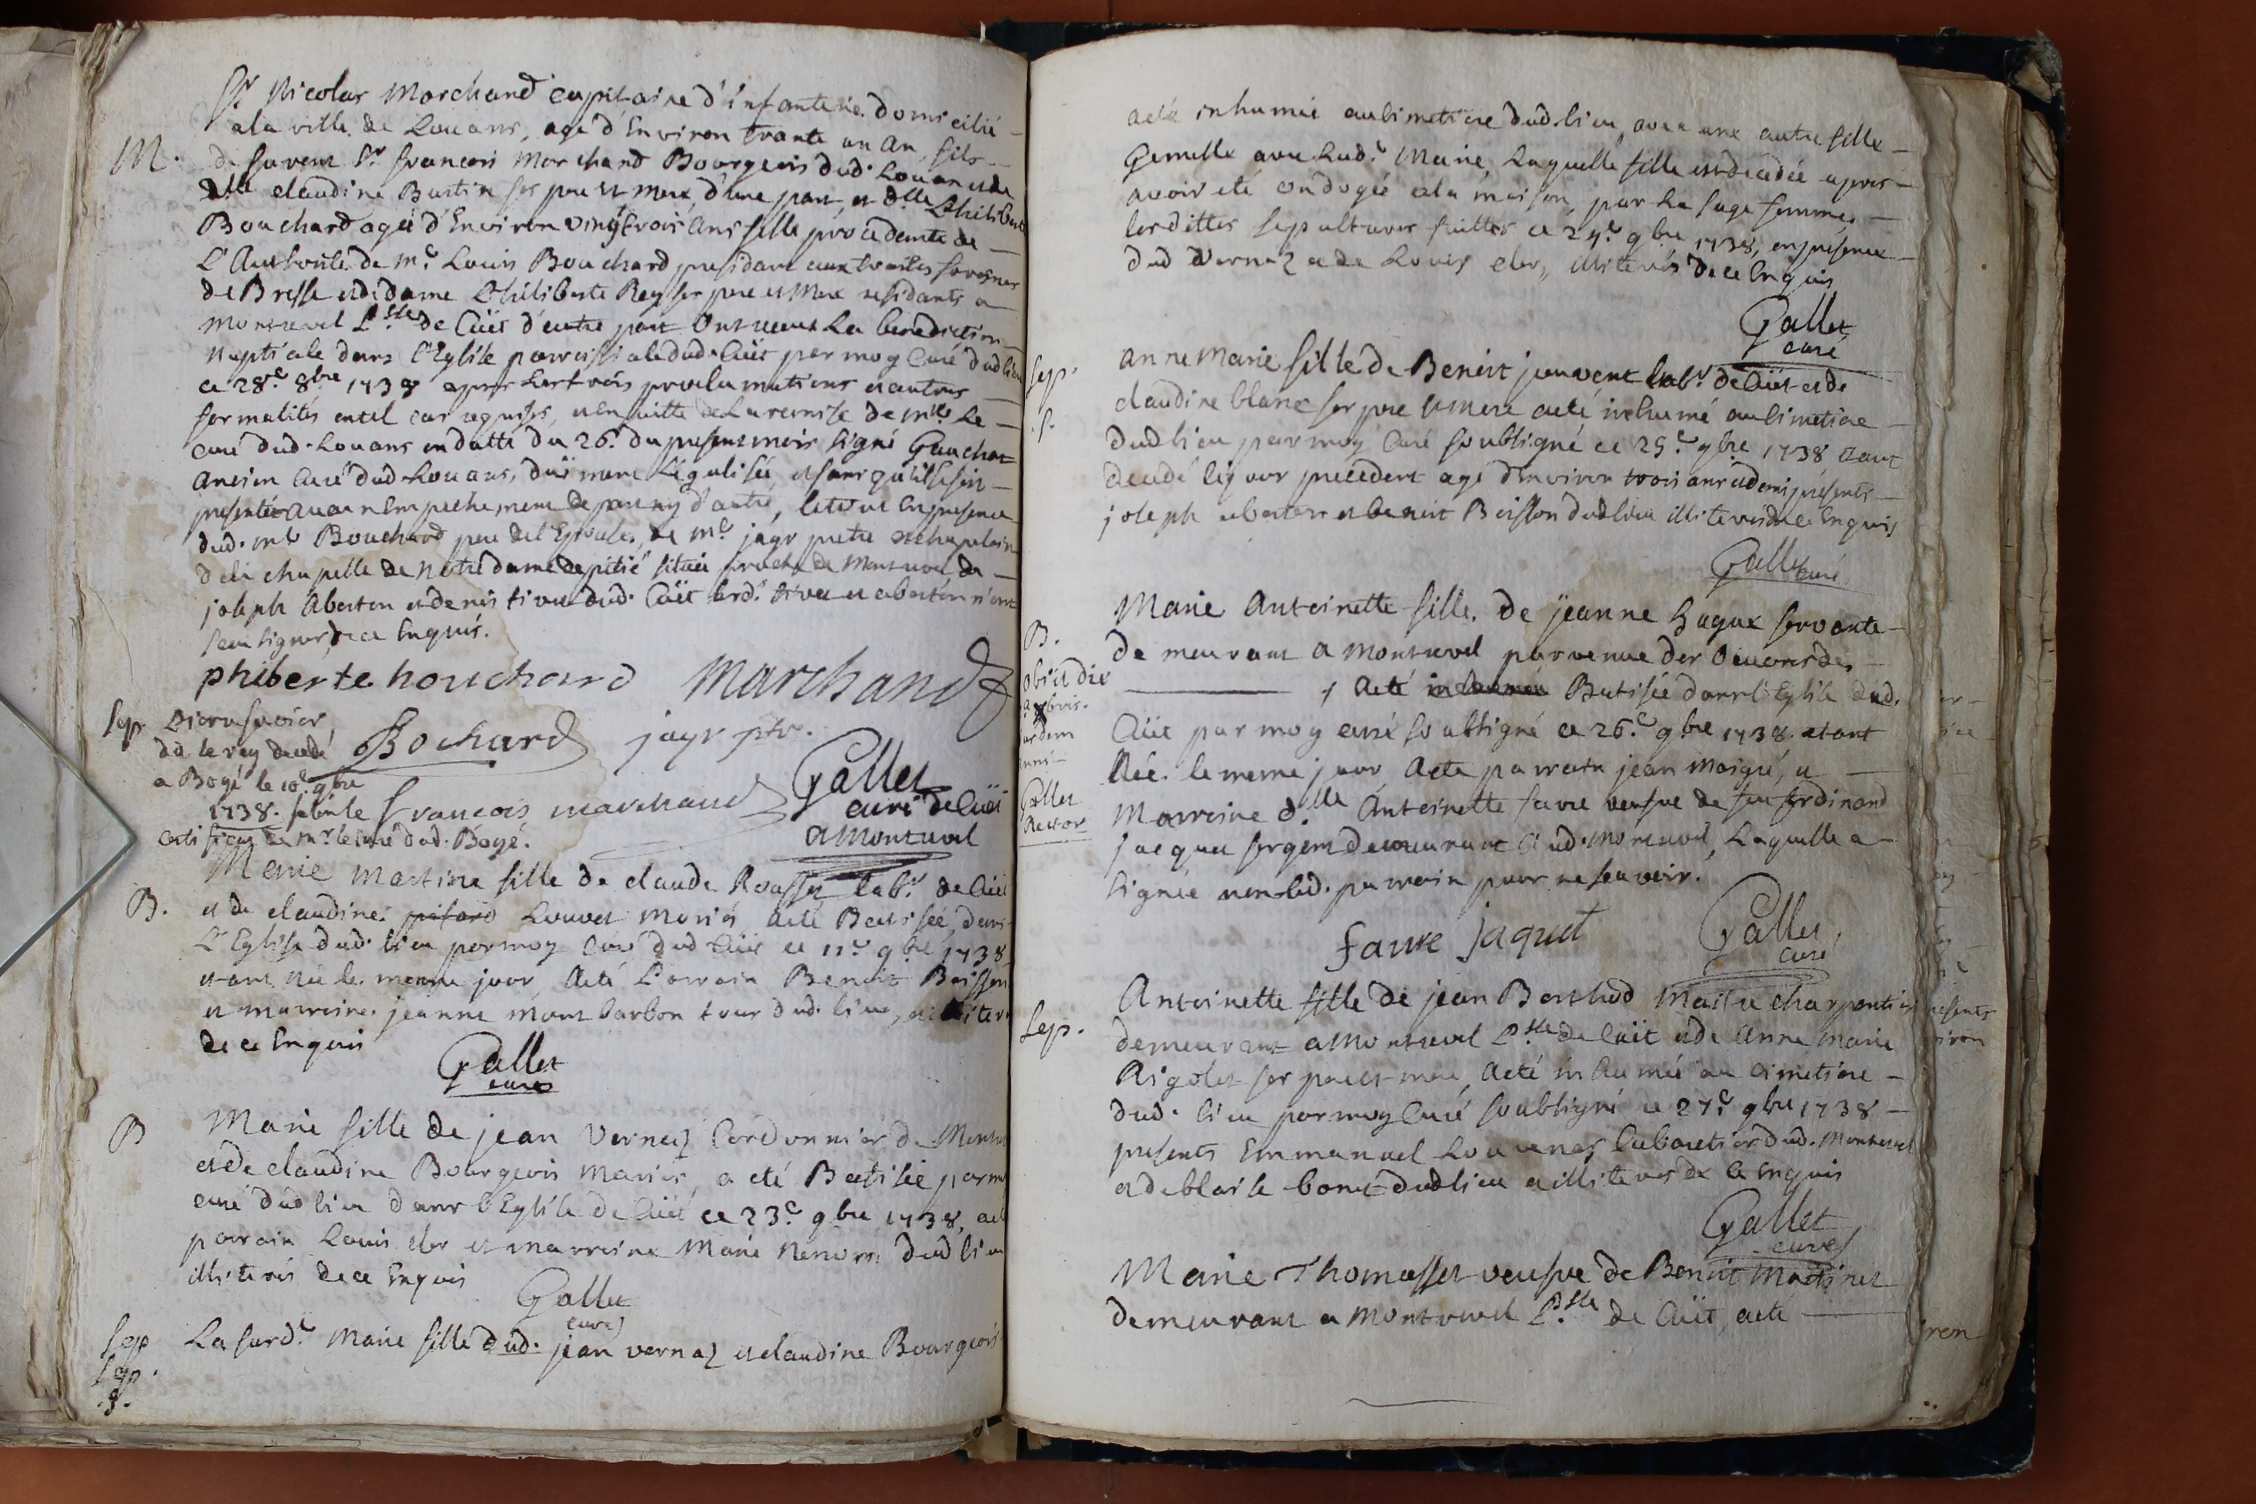 Sr Nicolas Marchand capitaine d'infanterie domicilié
a la ville de Louans, agé d'Environ trante un An, fils
M. de suvent Sr francois Marchand Bourgeois dud. Louan et de
dlle claudine Bastin ses pere et mere, d'une part, et dlle Philiberte
Bouchard agée d'Environ vingtrois Ans fille procedente de
L'Authorité de me Louis Bouchard presidant aux traites foresnes
de Bresse et de dame Philiberte Rey ses pere et Mere residants a
Montrevel Psse de Cüet d'autre part Ont receus La benediction
Nuptiale dans l'Eglise parroissiale dud. Cüet par moy Curé dudlieu
ce 28e 8bre 1738 appres Les trois proclamations et autres
formalités en tel cas requises, et En suitte de La remise de mre Le
curé dud. Louans en datte du 26e du present mois signé Gauchat
Ancien Curé dud Louans, düement Légalisée, et sans qu'il se soit
presenté aucun Empechement de part ny d'autre, le tout En presence
dud. me Bouchard pere del'Epouse, de me jayr pretre et chapelain
de la chapelle de Notre dame de pitié située proche de Montrevel de
joseph Aberton et denis tivu dud. Cüet lesd. et aberton n'ont
sceu signer de ce Enquis.
phiberte bouchard Marchand
Sep Pierre favier
dit le rey decedé Bochard jayr ptr.
a Bogé le 10e 9bre
1738. selon le francois marchand Gallet
certificat de Mr le curé dud. Bogé. curé de Cüet
a Montrevel
Marie Martine fille de claude Roussy labr de Cüet
B. et de claudine Louvet Mariés a eté Batisée dans
L'Eglise dud. lieu par moy Curé dud Cüet ce 11e 9bre 1738
etant née le meme jour, A eté Parrain Benoit Boisson
et marreine jeanne Mont barbon tous dud. lieu,
de ce Enquis
Gallet
curé
B Marie fille de jean Vernaz Cordonnier de
et de claudine Bourgeois Mariés, a eté Batisée par
curé dudlieu dans l'Eglise de Cüet ce 23e 9bre 1738,
parrain Louis cler et marreine Marie dudlieu
illiterés de ce Enquis
Gallet
curé
Sep La susde Marie fille dud. jean vernaz et claudine Bourgeois
Sep.
.g.
a eté inhumée au Cimetiere dud. lieu, avec une autre fille
Gemelle avec Lade Marie, Laquelle fille est decedée apres
avoir eté ondoyée a la maison, par La sage femme,
lesdittes sepultures faittes ce 24e 9bre 1738, en presence
dud Vernaz et de Louis cler, illiterés de ce Enquis
Gallet
curé
Sep. anne Marie fille de Benoit jouvent labr de Cüet et de
.g. claudine blanc ses pere et mere a eté inhumé au Cimetiere
dudlieu par moy Curé soubsigné ce 25e 9bre 1738 etant
decedé le jour precedent agé d'Environ trois ans et demi presents
joseph aberton et benoit Boisson dudlieu illiterés de ce Enquis
Gallet curé
Marie Antoinette fille de jeanne servante
B. demeurant a Montrevel parvenue des Oeuvres de
obiit die a eté Batisée dans l'Eglise dud.
Cüet par moy curé soubsigné ce 26e 9bre 1738. etant
Née le meme jour, A eté parrain jean Maigre, et
Gallet Marreine dlle Antoinette favre veufve de feu ferdinand
Rector jacquet sergent demeurant aud. Montrevel, Laquelle a
signée non led. parrain pour ne scavoir.
favre jaquet Gallet
curé
Antoinette fille de jean Berthod Maitre charpentier
Sep. demeurant a Montrevel Psse de Cüet et de Anne Marie
Rigolet ses pere et mere, A eté inhumée au cimetiere
dud. lieu par moy Curé soubsigné ce 27e 9bre 1738
presents Emmanuel Louvenas Cabaretier dud. Montrevel
et de blaise bonet dudlieu illiterés de ce Enquis
Gallet
curé
Marie Thomasset veufve de Benoit Martinet
demeurant a Montrevel Psse de Cüet, a eté